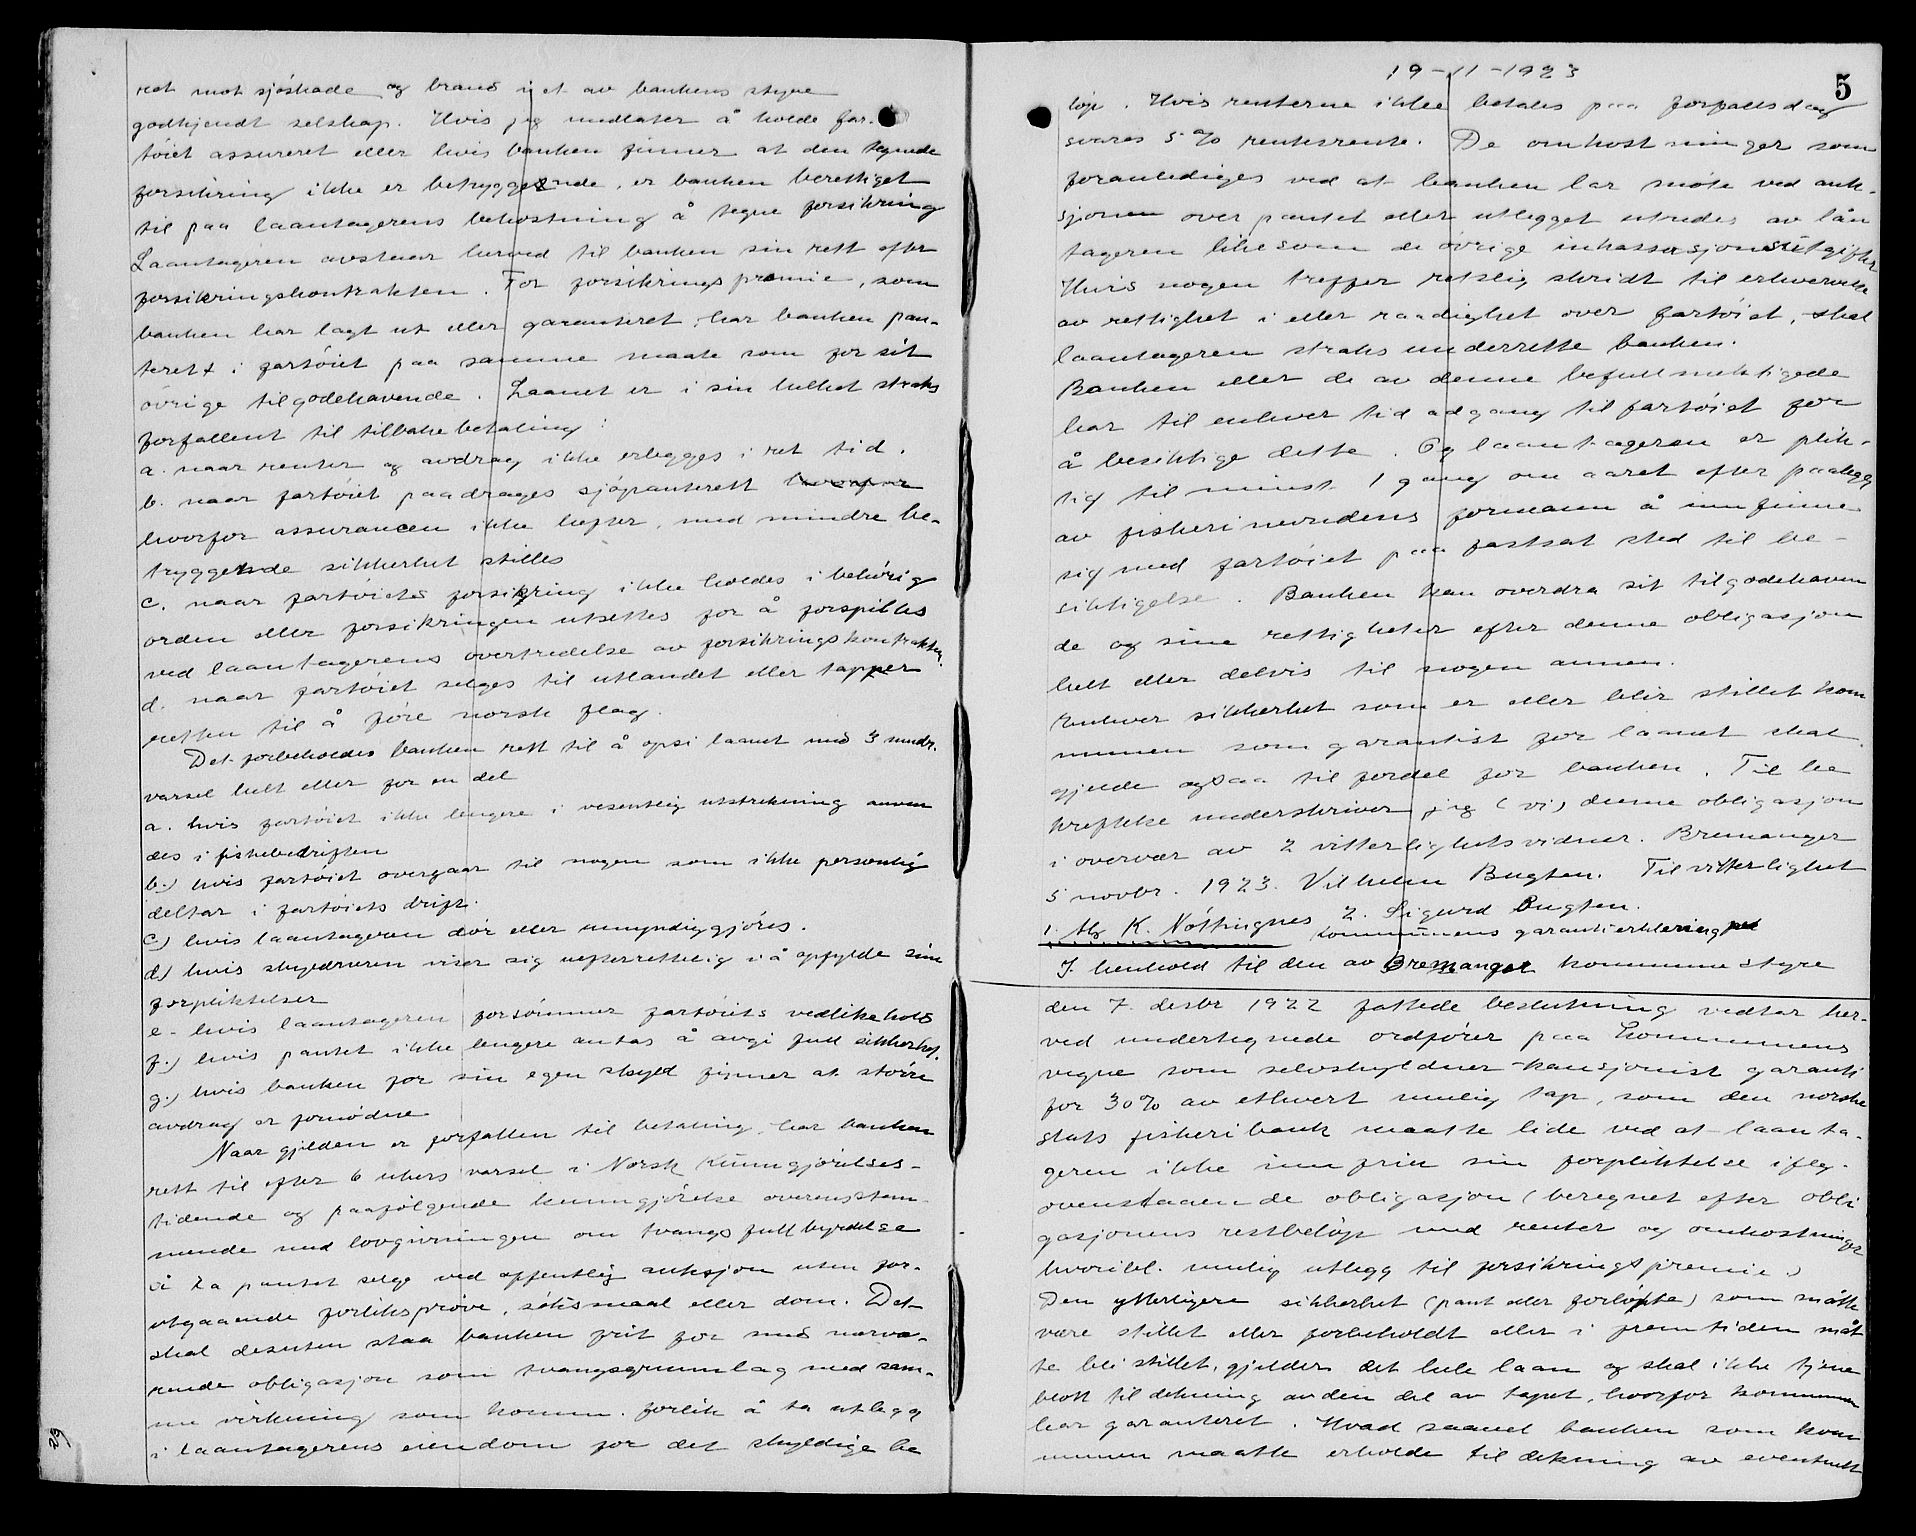 ret mot sjöskade og brand i et av bankens styre
godkjendt selskap. Hvis jeg undlater å holde far-
töiet assureret eller hvis banken finner at den tegnede
forsikring ikke er betryggende, er banken berettiget
til paa laantagerens bekostning å tegne forsikring
Laantageren avstaar herved til banken sin rett efter
forsikringskontrakten. For forsikringspremie, som
banken har lagt ut eller garanteret, har banken pan-
terett i fartöiet paa samme maate som for sit
övrige tilgodehavende. Laanet er i sin helhet straks
forfallent til tilbakebetaling:
a. naar renter og avdrag ikke erlegges i ret tid.
b. naar fartöiet paadrages sjöpanterett
hvorfor assurancen ikke hefter, med mindre be-
tryggende sikkerhet stilles
c. naar fartöiets forsikring ikke holdes i behörig
orden eller forsikringen utsettes for å forspilles
ved laantagerens overtredelse av forsikringskontrakten.
d. naar fartöiet selges til utlandet eller tapper
retten til å före norsk flag.
Det forbeholdes banken rett til å opsi laanet med 3 mndr.
varsel helt eller for en del
a. hvis fartöiet ikke lengere i vesentlig utstrekning anven
des i fiskebedriften
b.) hvis fartöiet overgaar til nogen som ikke personlig
deltar i fartöiets drift.
c) hvis laantageren dör eller umyndiggjöres.
d) hvis skyldneren viser sig uefterrettelig i å opfylde sine
forpliktelser
e- hvis laantageren forsömmer fartöiets vedlikehold
f.) hvis pantet ikke lengere antas å avgi full sikkerhet.
g.) hvis banken for sin egen skyld finner at större
avdrag er fornödne
Naar gjelden er forfallen til betaling, har banken
rett til efter 6 ukers varsel i Norsk Kunngjörelses-
tidende og paafölgende kunngjörelse overensstem-
mende med lovgivningen om tvangsfullbyrdelse
å la pantet selge ved offentlig auksjon uten for-
utgaaende forlikspröve, söksmaal eller dom. Det
skal desuten staa banken frit for med nærvæ-
rende obligasjon som tvangsgrunnlag med sam-
me virkning som komm. forlik å ta utlegg
i laantagerens eiendom for det skyldige be
29
19-11-1923
5
löp. Hvis renterne ikke betales paa forfallsdag
svares 5% rentesrente. De omkostninger som
foranlediges ved at banken lar möte ved auk-
sjonen over pantet eller utlegget utredes av lån
tageren likesom de övrige inkassasjonsutgifter
Hvis nogen treffer retslig skridt til erhvervelse
av rettighet i eller raadighet over fartöiet, skal
laantageren straks underrette banken.
Banken eller de av denne befullmektigede
har til enhver tid adgang til fartöiet for
å besiktige dette. Og laantageren er plik-
tig til minst 1 gang om aaret efter paalegg
av fiskerinevndens formann å innfinne
sig med fartöiet paa fastsat sted til be-
siktigelse. Banken kan overdra sit tilgodehaven
de og sine rettigheter efter denne obligasjon
helt eller delvis til nogen annen.
Enhver sikkerhet som er eller blir stillet kom
munen som garantist for laanet skal
gjelde ogsaa til fordel for banken. Til be
kreftelse underskriver jeg (vi) denne obligasjon
i overvær av 2 vitterlighetsvidner. Bremanger
5 novbr. 1923. Vilhelm Bugten. Til vitterlighet
1. K. Nöttingnes 2. Sigurd Bugten.
Kommunens garantierklering
I henhold til den av Bremanger kommunestyre
den 7. desbr 1922 fattede beslutning vedtar her-
ved undertegnede ordförer paa kommunens
vegne som selvskyldner-kausjonist garanti
for 30% av ethvert mulig tap, som den norske
stats fiskeribank maatte lide ved at laanta-
geren ikke innfrir sin forpliktelse ifölg-
ovenstaaende obligasjon (beregnet efter obli
gasjonens restbelöp med renter og omkostninger
hvoribl. mulig utlegg til forsikringspremie.)
Den ytterligere sikkerhet (pant eller forlöfte) som måtte
være stillet eller forbeholdt eller i fremtiden måt
te bli stillet, gjelder det hele laan og skal ikke tjene
blott til dekning av den del av tapet, hvorfor kommunen
har garanteret. Hvad saavel banken som kom
munen maatte erholde til dekning av eventuelt